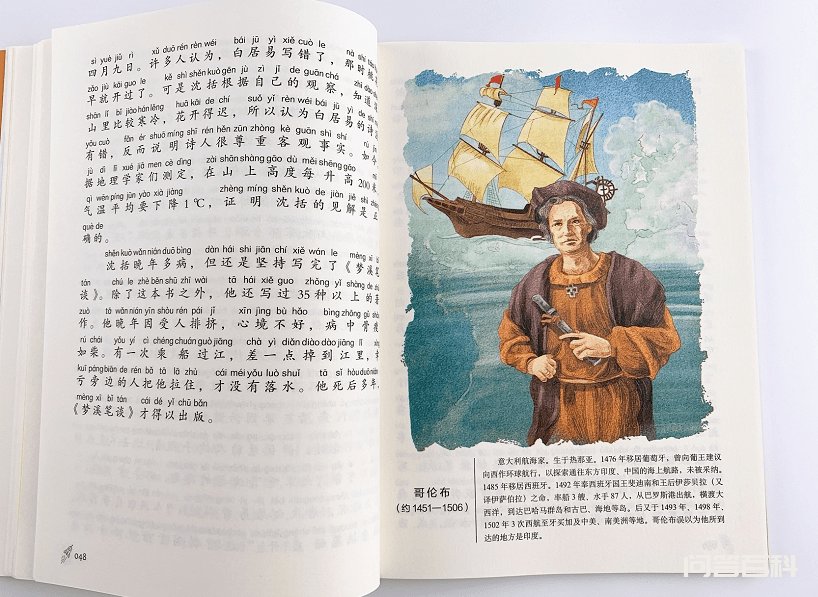 sì yuè jiǔ rì xǔ duō rén rèn wéi bái jū yì xiě cuò le nà shí
四月九日。许多人认为，白居易写错了，那时桃
zǎo jiù kāi guo le kě shì shěn kuò gēn jù zì jǐ de guān chá zhī dào
早就开过了。可是沈括根据自己的观察，知道
shān lǐ bǐ jiào hán lěng huā kāi de chí suǒ yǐ rèn wéi bái jū yì de shī
山里比较寒冷，花开得迟，所以认为白居易的诗
yǒu cuò fǎn ér shuō míng shī rén hěn zūn zhòng kè guān shì shí rú jīn
有错，反而说明诗人很尊重客观事实。如今
jù dì lǐ xué jiā men cè dìng zài shān shàng gāo dù měi shēng gāo
据地理学家们测定，在山上高度每升高200米
qì wēn píng jūn yào xià jiàng zhèng míng shěn kuò de jiàn jiě shì
气温平均要下降1℃，证明沈括的见解是正
què de
确的。
shěn kuò wǎn nián duō bìng dàn hái shi jiān chí xiě wán le mèng xī bǐ
沈括晚年多病，但还是坚持写完了《梦溪笔
tán chú le zhè běn shū zhī wài tā hái xiě guo zhǒng yǐ shàng de
谈》。除了这本书之外，他还写过35种以上的著
zuò tā wǎn nián yīn shòu rén pái jǐ xīn jìng bù hǎo bìng zhōng gǔ
作。他晚年因受人排挤，心境不好，病中骨瘦
rú chái yǒu yí cì chéng chuán guò jiāng chà yì diǎn diào dào jiāng lǐ
如柴。有一次乘船过江，差一点掉到江里，
kuī páng biān de rén bǎ tā lā zhù cái méi yǒu luò shuǐ tā sǐ hòu duō nián
亏旁边的人把他拉住，才没有落水。他死后多年，
mèng xī bǐ tán cái dé yǐ chū bǎn
《梦溪笔谈》才得以出版。
048
哥伦布
（约1451—1506）
意大利航海家。生于热那亚。1476年移居葡萄牙，曾向葡王建议
向西作环球航行，以探索通往东方印度、中国的海上航路，未被采纳。
1485年移居西班牙。1492年奉西班牙国王斐迪南和王后伊莎贝拉（又
译伊萨伯拉）之命，率船3艘、水手87人，从巴罗斯港出航，横渡大
西洋，到达巴哈马群岛和古巴、海地等岛。后又于1493年、1498年、
1502年3次西航至牙买加及中美、南美洲等地。哥伦布误以为他所到
达的地方是印度。
问答百科